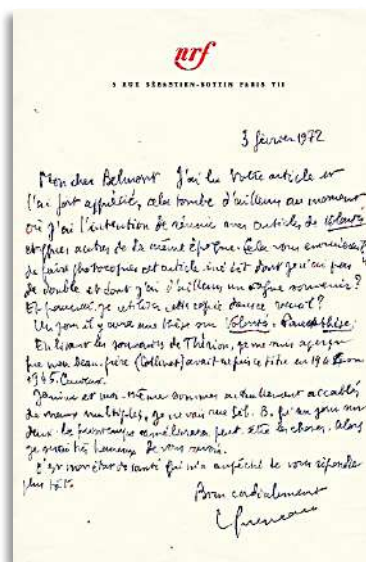 nrf
5 RUE SÉBASTIEN-BOTTIN PARIS VII
3 février 1972
Mon cher Belmont J'ai lu votre article et
l'ai fort apprécié, cela tombe d'ailleurs au moment
où j'ai l'intention de réunir mes articles de Volontés
et qques autres de la même époque. Cela vous ennuierait
de faire photocopier cet article inédit dont je n'ai pas
de double et dont j'ai d'ailleurs un vague souvenir?
Et pourrai-je utiliser cette copie dans ce recueil?
Un jour il y aura une thèse sur Volontés.
En lisant les souvenirs de Thérion, je me suis aperçu
que mon beau-frère (Collinet) avait repris ce titre en 1945
1945. Curieux.
Janine et moi-même sommes actuellement accablés
de maux multiples, je ne vais rue Séb. B. qu'un jour sur
deux. Le printemps améliorera peut-être les choses. Alors
je serai très heureux de vous revoir.
C'est mon état de santé qui m'a empêché de vous répondre
plus tôt.
Bien cordialement
Queneau